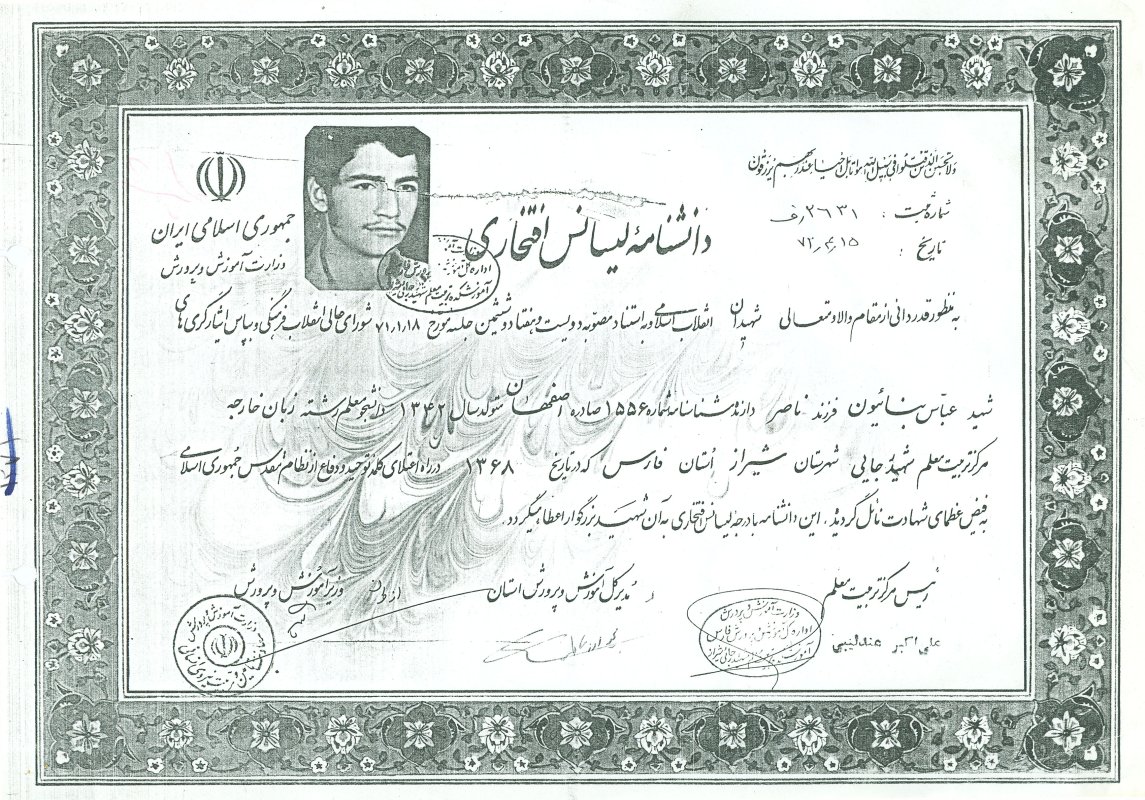 ولا تحسبن الذین قتلوا فی سبیل الله امواتا بل احیاء عند ربهم یرزقون
جمهوری اسلامی ایران
وزارت آموزش و پرورش
شماره ثبت : ۲۶۳۱رف
تاریخ : ۷۲٫۴٫۱۵
دانشنامهٔ لیسانس افتخاری
به منظور قدردانی از مقام والا و متعالی شهیدان انقلاب اسلامی و به استناد مصوبه دویست و هفتاد و ششمین جلسه مورخ ۷۱٫۱٫۱۸ شورای عالی انقلاب فرهنگی و بپاس ایثارگری های
شهید عباس بنائیون فرزند ناصر دارنده شناسنامه شماره ۱۵۵۶ صادره اصفهان متولد سال ۱۳۴۲ دانشجو معلم رشته زبان خارجه
مرکز تربیت معلم شهید رجایی شهرستان شیراز استان فارس که در تاریخ ۱۳۶۸ در راه اعتلای کلمه توحید و دفاع از نظام مقدس جمهوری اسلامی
به فیض عظمای شهادت نائل گردید. این دانشنامه با درجه لیسانس افتخاری به آن شهید بزرگوار اعطا میگردد.
رئیس مرکز تربیت معلم
مدیر کل آموزش و پرورش استان
وزیر آموزش و پرورش
علی اکبر عندلیبی
وزارت آموزش و پرورش
اداره کل آموزش و پرورش فارس